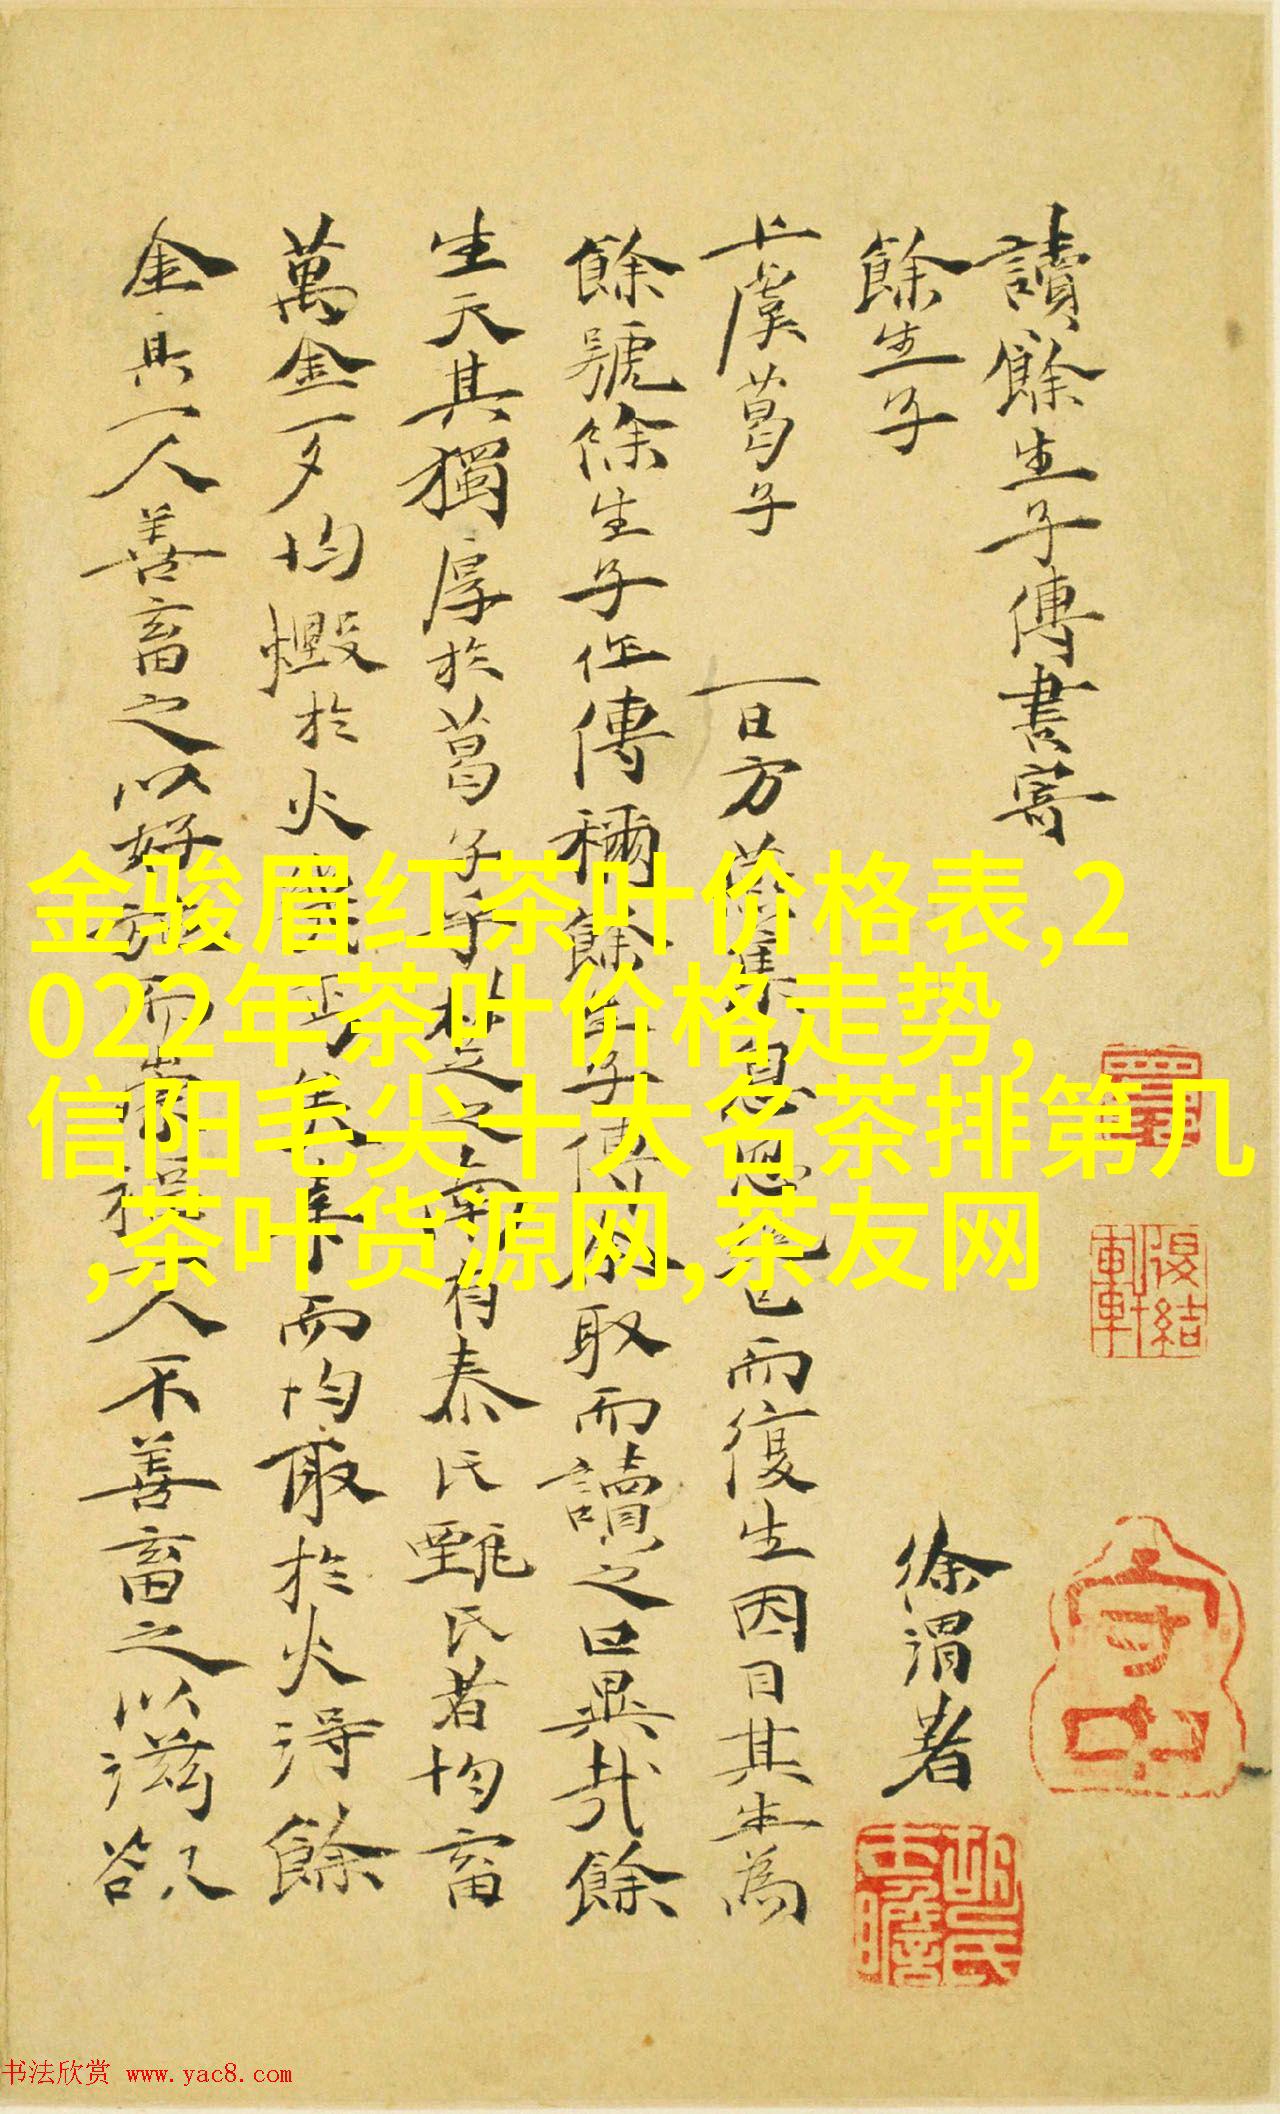 讀餘生子傳書寄
餘生子
徐渭著
上虞葛子
一日方
集息忽
已而復生因目其生為
餘號餘生子作傳稱餘生子傳
取而讀之曰異哉餘
生天其獨厚於葛子乎
之南有秦氏甄氏者均畜
萬金一夕均燬於火
年而均取於火得餘
金其一人善畜之以好
而
人不善畜之以滋欲
金骏眉红茶叶价格表,2
022年茶叶价格走势,
信阳毛尖十大名茶排第几
,茶叶货源网,茶友网
守中
復結
軒
书法欣赏 www.yac8.com